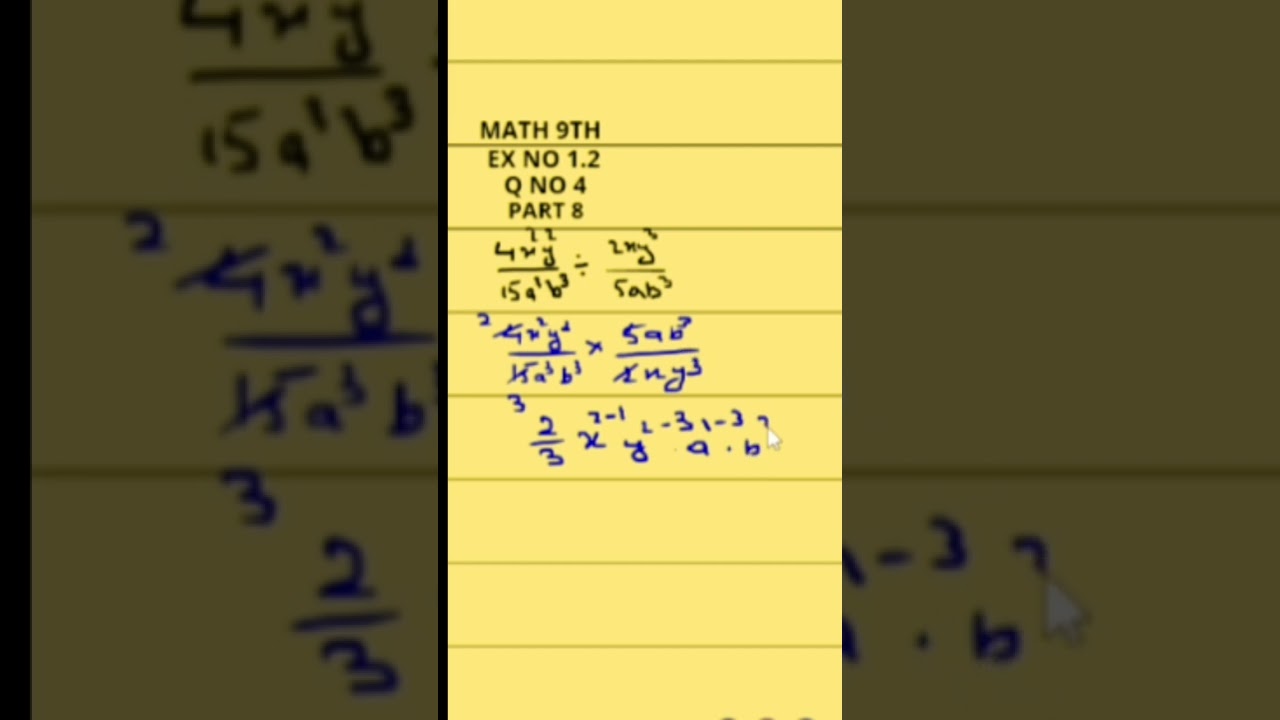 MATH 9TH
EX NO 1.2
Q NO 4
PART 8
4x²y²/15a³b³ ÷ 2xy³/5ab³
2 4x²y²/15a³b³ × 5ab³/2xy³
3
2/3 x²⁻¹ y²⁻³ · a¹⁻³ · b³